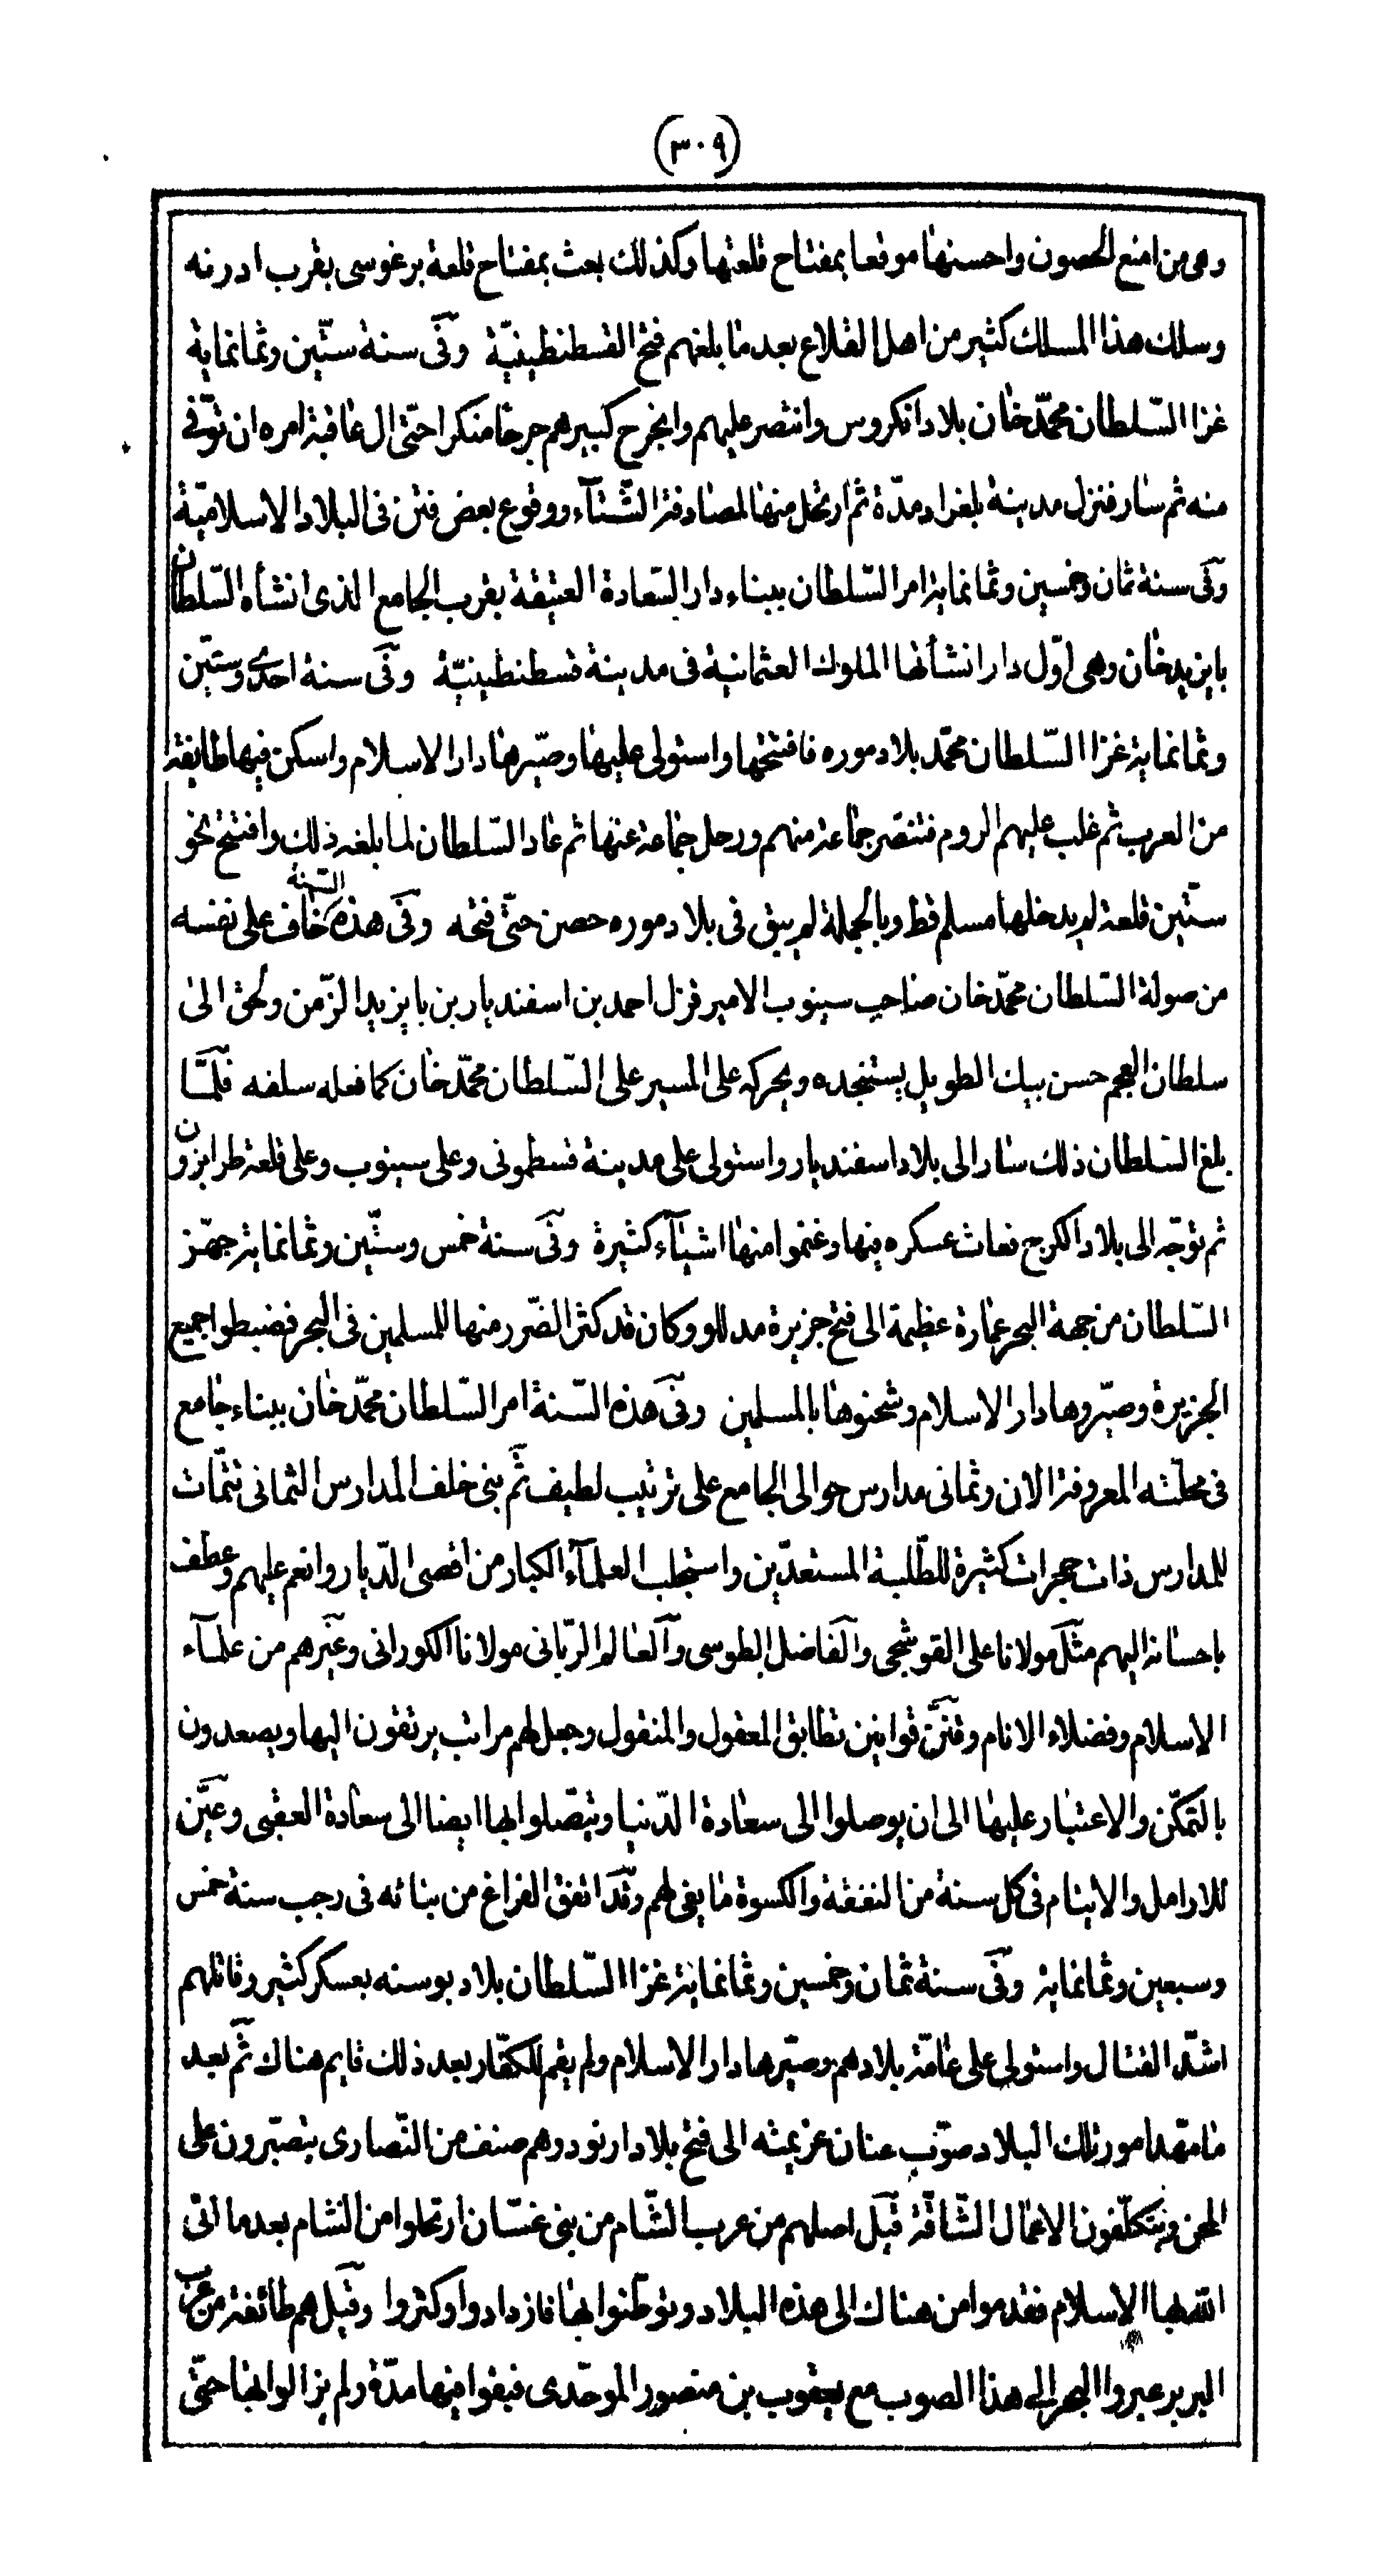 (٣٠٩)
وهى من امنع الحصون واحسنها موقعا بمفتاح قلعتها وكذلك بعث بمفتاح قلعة برغوسى بقرب ادرنه
وسلك هذا المسلك كثير من اهل القلاع بعد ما بلغهم فتح القسطنطينيّة وفى سنة ستّين وثمانماية
غزا السّلطان محمّد خان بلاد انكروس وانتصر عليهم وانجرح كبيرهم جرحا منكرا حتّى ال عاقبة امره ان توّفى
منه ثم سار فنزل مدينة بلغراد مدّة ثم ارتحل منها لمصادفة الشّتآء ووقوع بعض فتن فى البلاد الاسلاميّة
وفى سنة ثمان وخمسين وثمانماية امر السّلطان ببناء دار السّعادة العتيقة بقرب الجامع الذى انشأه السّلطان
بايزيد خان وهى اوّل دار انشأتها الملوك العثمانية فى مدينة قسطنطينيّة وفى سنة احدى وستّين
وثمانماية غزا السّلطان محمّد بلاد موره فافتتحها واستولى عليها وصيّرها دار الاسلام واسكن فيها طايفة
من العرب ثم غلب عليهم الروم فتنصّر جماعة منهم ورحل جماعة عنها ثم عاد السّلطان لما بلغه ذلك وافتتح نحو
ستّين قلعة لم يدخلها مسلم قط وبالجملة لم يبق فى بلاد موره حصن حتّى فتحه وفى هذه السّنة خاف على نفسه
من صولة السّلطان محمّد خان صاحب سينوب الامير قزل احمد بن اسفنديار بن بايزيد الزّمن ولحق الى
سلطان العجم حسن بيك الطويل يستنجده ويحركه على المسير على السّلطان محمّد خان كما فعله سلفه فلمّا
بلغ السّلطان ذلك سار الى بلاد اسفنديار واستولى على مدينة قسطمونى وعلى سينوب وعلى قلعة طرابزون
ثم توجّه الى بلاد الكرج فعاث عسكره فيها وغنموا منها اشيآء كثيرة وفى سنة خمس وستّين وثمانماية جهّز
السّلطان من جهة البحر عمارة عظيمة الى فتح جزيرة مدللو وكان قد كثر الضّرر منها للمسلمين فى البحر فضبطوا جميع
الجزيرة وصيّروها دار الاسلام وشحنوها بالمسلمين وفى هذه السّنة امر السّلطان محمّد خان ببناء جامع
فى محلّته المعروفة الان وثمانى مدارس حوالى الجامع على ترتيب لطيف ثم بنى خلف المدارس الثمانى تتمّات
للمدارس ذات حجرات كثيرة للطّلبة المستعدّين واستجلب العلمآء الكبار من اقصى الدّيار وانعم عليهم وعطف
باحسانه اليهم مثل مولانا على القوشجى والفاضل الطوسى والعالم الرّبانى مولانا الكورانى وغيرهم من علمآء
الاسلام وفضلاء الانام وقنّن قوانين تطابق المعقول والمنقول وجعل لهم مراتب يرتقون اليها ويصعدون
بالتمكّن والاعتبار عليها الى ان يوصلوا الى سعادة الدّنيا ويتصّلوا بها ايضا الى سعادة العقبى وعيّن
للارامل والايتام فى كل سنة من النفقة والكسوة ما يفى لهم وقد اتفق الفراغ من بنائه فى رجب سنة خمس
وسبعين وثمانماية وفى سنة ثمان وخمسين وثمانماية غزا السّلطان بلاد بوسنه بعسكر كثير وقاتلهم
اشدّ القتال واستولى على عامّة بلادهم وصيّرها دار الاسلام ولم يقم للكفّار بعد ذلك قايم هناك ثم بعد
ما مهّد امور تلك البلاد صوّب عنان عزيمته الى فتح بلاد ارنود وهم صنف من النّصارى يتصبّرون على
المحن ويتكلّفون الاعمال الشّاقّة قيل اصلهم من عرب الشّام من بنى غسّان ارتحلوا من الشام بعد ما اتى
الله بها الاسلام فقدموا من هناك الى هذه البلاد وتوطّنوا بها فازدادوا وكثروا وقيل هم طائفة من عرب
البربر عبروا البحر الى هذا الصوب مع يعقوب بن منصور الموحّدى فبقوا فيها مدّة ولم يزالوا بها حتّى